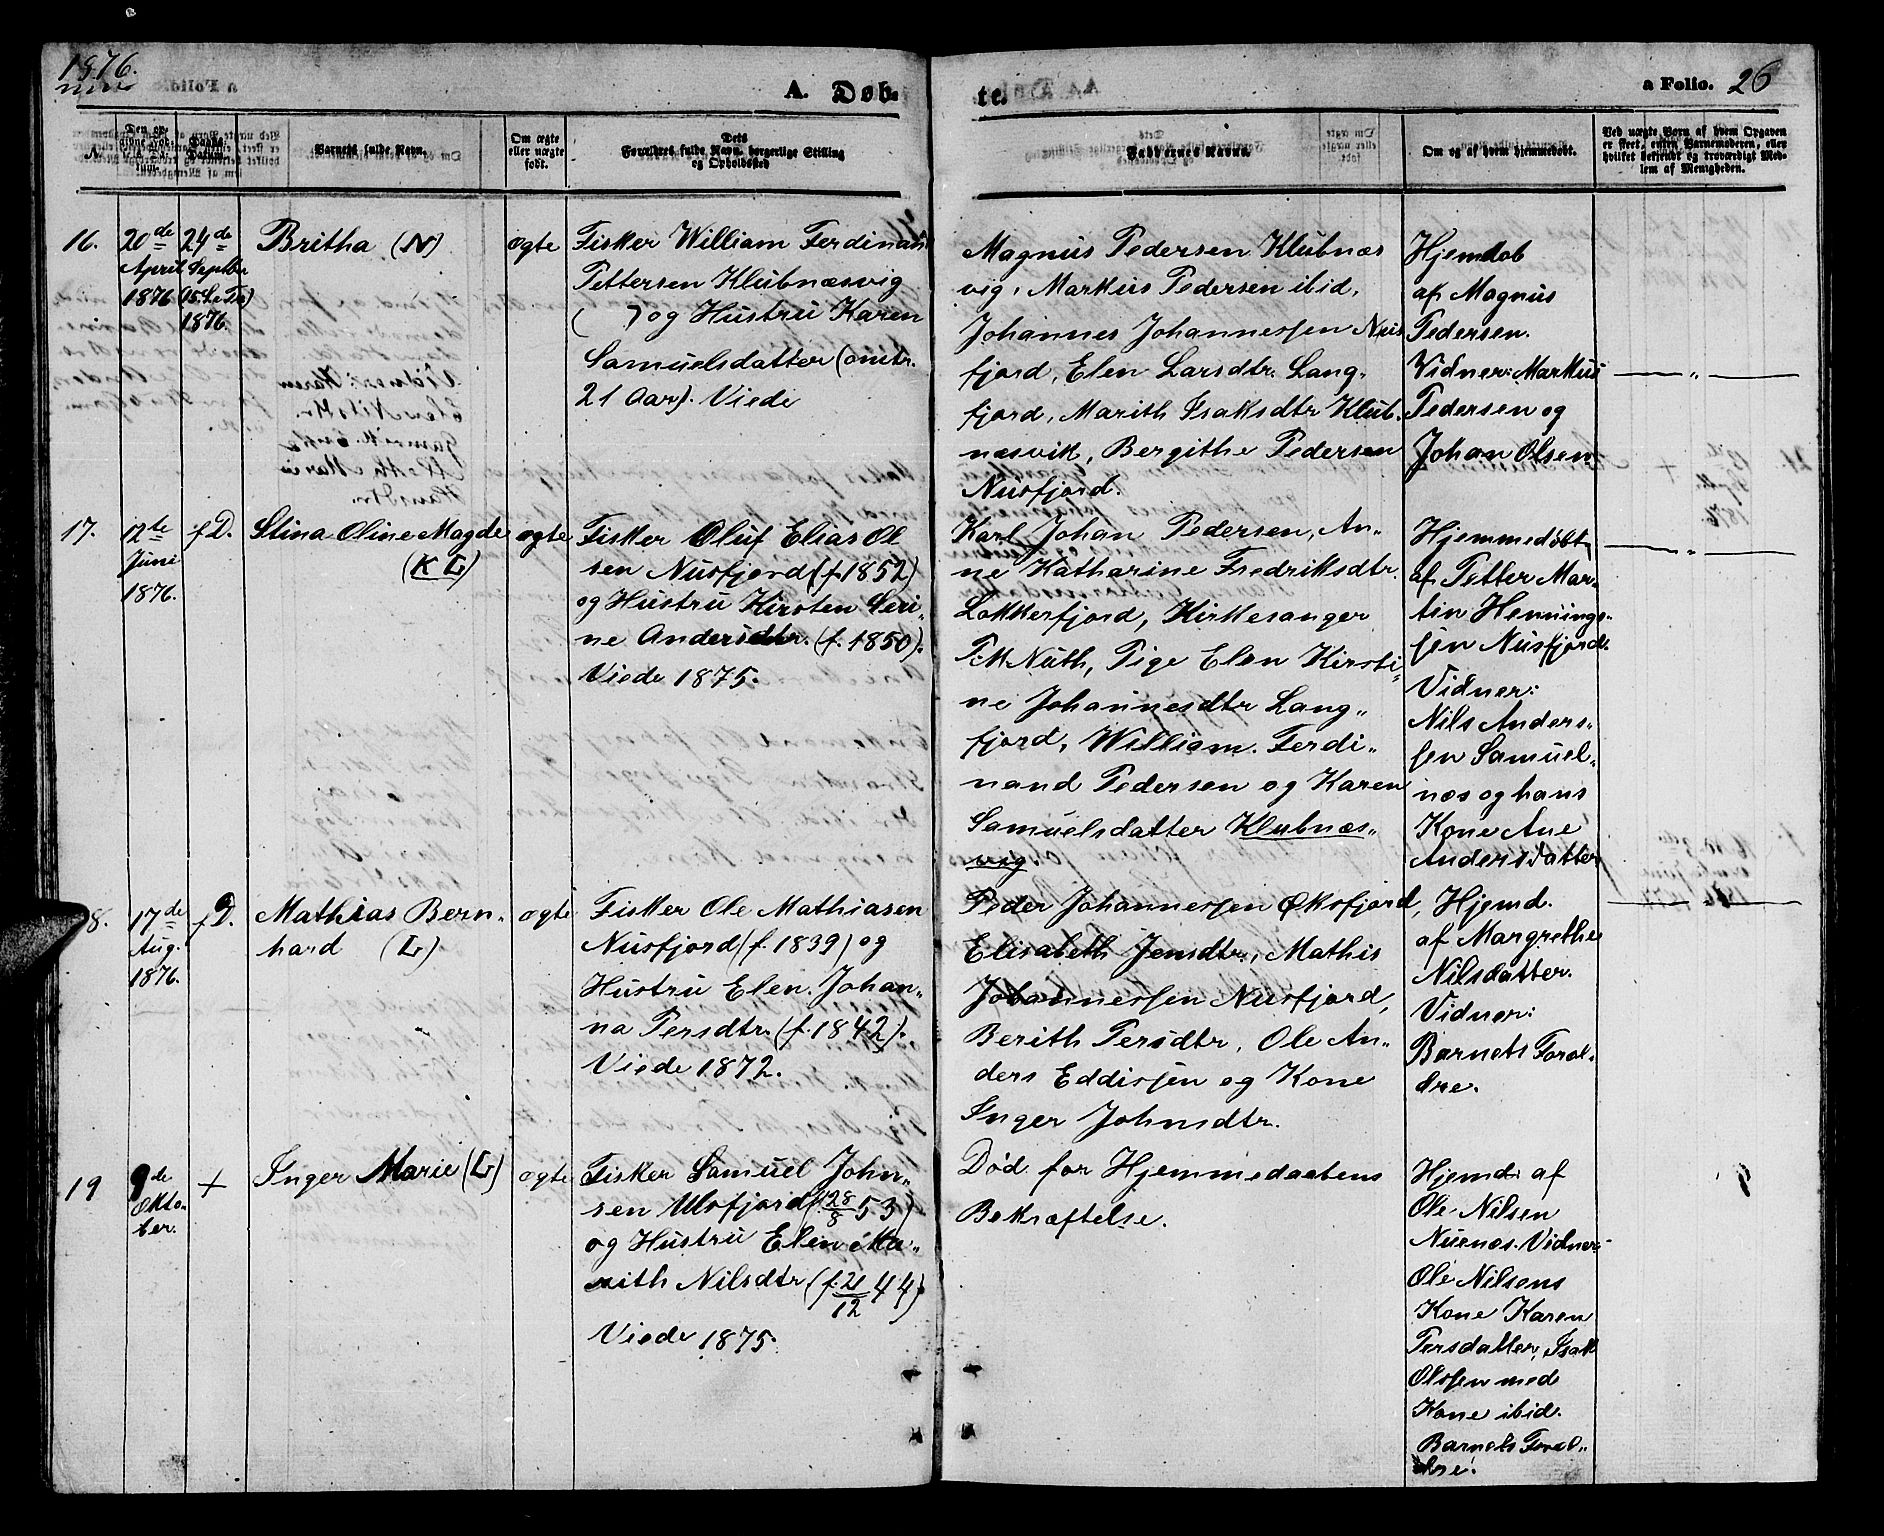 1876.
A. Døb-
te.
a Folio. 26
N.
Barnets fulde Navn.
Om ægte
eller uægte
født.
Dets
Forældres fulde Navn, borgerlige Stilling
og Opholdssted
Faddernes Navne.
Om og af hvem hjemmedøbt.
Ved uægte Børn af hvem Opgaven
er skeet, enten Barnemoderen, eller
hvilket bekjendt og troværdigt Med-
lem af Menigheden.
16.
20de
April
1876
24de
Septbr
1876.
Britha (N)
ægte
Fisker William Ferdinand
Pettersen Klubnæsvig
( ) og Hustru Karen
Samuelsdatter (omtr.
21 Aar). Viede
Magnus Pedersen Klubnæs
vig, Markus Pedersen ibid,
Johannes Johannessen Nus
fjord, Elen Larsdtr. Lang-
fjord, Marith Isaksdtr Klub-
næsvik, Bergithe Pedersen
Nusfjord.
Hjemdøb
af Magnus
Pedersen.
Vidner: Markus
Pedersen og
Johan Olsen.
— " —
17.
12te
Juni
1876.
f D.
Stina Oline Magda
(K L)
ægte
Fisker Oluf Elias Ol
sen Nusfjord (f. 1852)
og Hustru Kirsten Seri-
ne Andersdtr. (f. 1850).
Viede 1875.
Karl Johan Pedersen, An-
ne Katharine Fredriksdtr.
Lokkerfjord, Kirkesanger
Nuth, Pige Elen Kirsti-
ne Johannesdtr Lang-
fjord, William Ferdi-
nand Pedersen og Karen
Samuelsdatter Klubnæs-
vig
Hjemmedøbt
af Petter Mar-
tin Hennings-
sen Nusfjord.
Vidner:
Nils Anders-
sen Samuel-
næs og hans
Kone Ane
Andersdatter
— " —
8.
17de
Aug.
1876.
f D.
Mathias Bern-
hard (L)
ægte
Fisker Ole Mathiasen
Nusfjord (f. 1839) og
Hustru Elen Johan-
na Persdtr. (f. 1842).
Viede 1872.
Peder Johannessen Øksfjord,
Elisabeth Jensdtr, Mathis
Johannessen Nusfjord,
Berith Persdtr, Ole An-
ders Eddissen og Kone
Inger Johnsdtr.
Hjemd.
af Margrethe
Nilsdatter.
Vidner:
Barnets Foræl-
dre.
— " —
19
9de
Okto-
ber.
+
Inger Marie (L)
ægte
Fisker Samuel John-
sen Ulsfjord (28/8 53)
og Hustru Elen Ma-
rith Nilsdtr (f. 21/12 44)
Viede 1875.
Død før Hjemmedaabens
Bekræftelse.
Hjemd. af
Ole Nilsen
Nuenæs. Vidner:
Ole Nilsens
Kone Karen
Persdatter, Isak
Olssen med
Kone ibid.
Barnets Foræl-
dre.